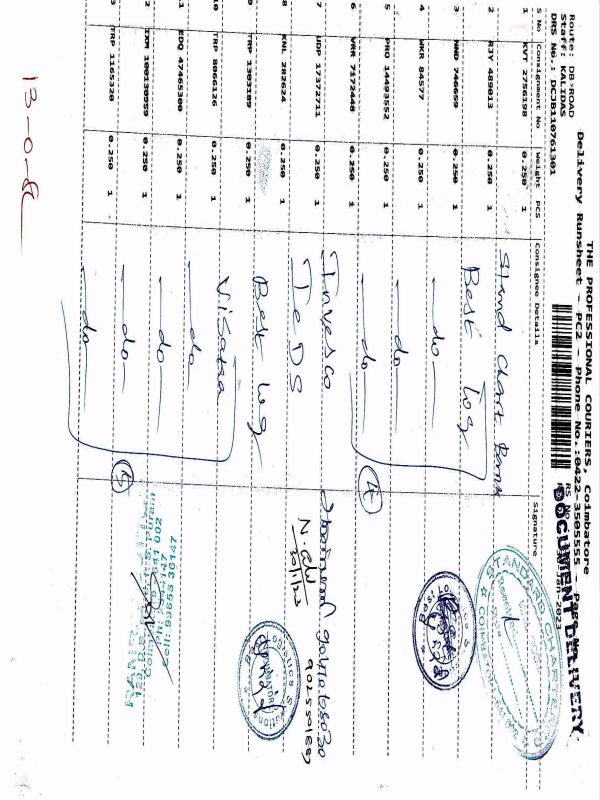 THE PROFESSIONAL COURIERS, Coimbatore
Delivery Runsheet - PC2 - Phone No.:0422-3505555 Page No.
Route: DB-ROAD
Staff: KALIDAS
DRS No.: DCJB110761301
DOCUMENT DELIVERY
S No Consignment No Weight PCS Consignee Details Signature
1 KVT 2756198 0.250 1 Stand Chart Bank
2 RJY 489813 0.250 1 Best Log
3 NND 740669 0.250 1 do
4 WKR 84577 0.250 1 do
5 PRO 14493552 0.250 1 do
6 VRR 7172448 0.250 1 Invesco
7 UDP 17372711 0.250 1 Te DS
8 KNL 287624 0.250 1 Best Log
9 TRP 1303189 0.250 1 Visaka
10 TRP 8066126 0.250 1 do
11 EDQ 47465300 0.250 1 do
12 IXM 100130959 0.250 1 do
13 TRP 1165320 0.250 1 do
4
5
STANDARD CHARTERED
COIMBATORE
30/1/23
9025501889
Cell: 98655 30147